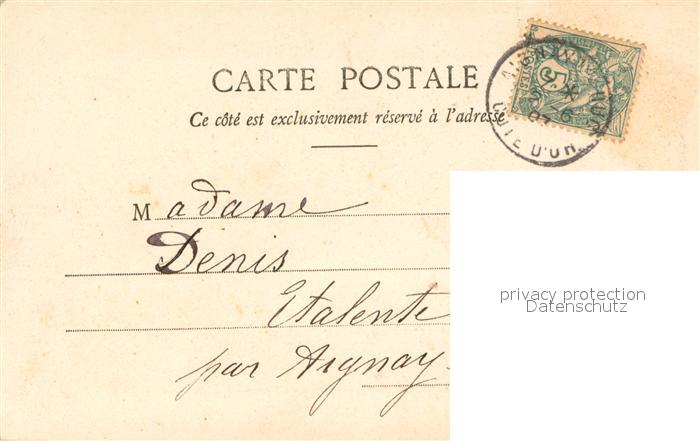 CARTE POSTALE
Ce côté est exclusivement réservé à l'adresse
5
CÔTE D'OR
Madame
Denis
Etalente
par Aignay-
privacy protection
Datenschutz